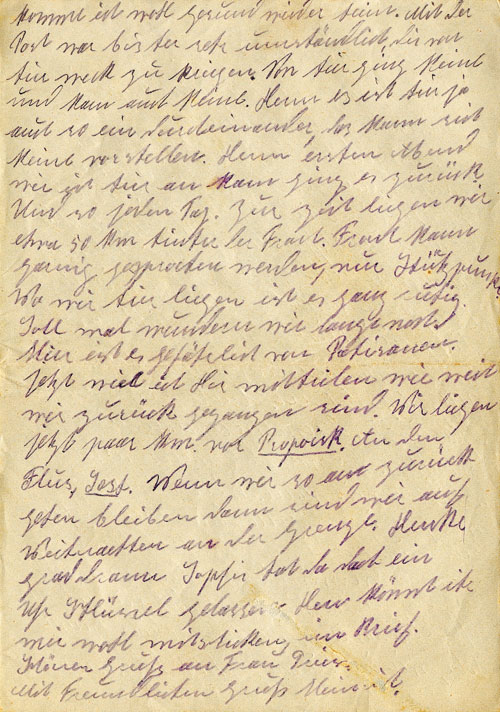 kommt ich wohl gesund wieder heim. Mit der
Post war bis her sehr umständlich die von
hier weck zu kriegen. Von hier ging keine
und kam auch keine. Denn es ist hier ja
auch so ein durcheinander, das kann sich
keine vorstellen. Denn ersten Abend
wie ich hier an kam ging es zurück.
Und so jeden Tag. Zur zeit liegen wir
etwa 50 km hinter der Front. Front kann
garnig gesprochen werden, nur Stützpunkte
Wo wir hier liegen ist es ganz ruhig.
Soll mal wundern wie lange noch.
Hier ist es gefährlich von Patisanen.
Jetzt will ich Dir mitteilen wie weit
wir zurück gegangen sind. Wir liegen
jetzt paar km. vor Propoisk. An den
Flus, Sosf. Wenn wir so am zurück
gehen bleiben dann sind wir auf
Weihnachten an der Grenze. Denke
grad dran hat da doch ein
Uhr Schlüssel gelassen. Den könnt ihr
mir wohl mitschicken im Brief.
Schönen Gruß an Frau
Mit Freundlichen Gruß